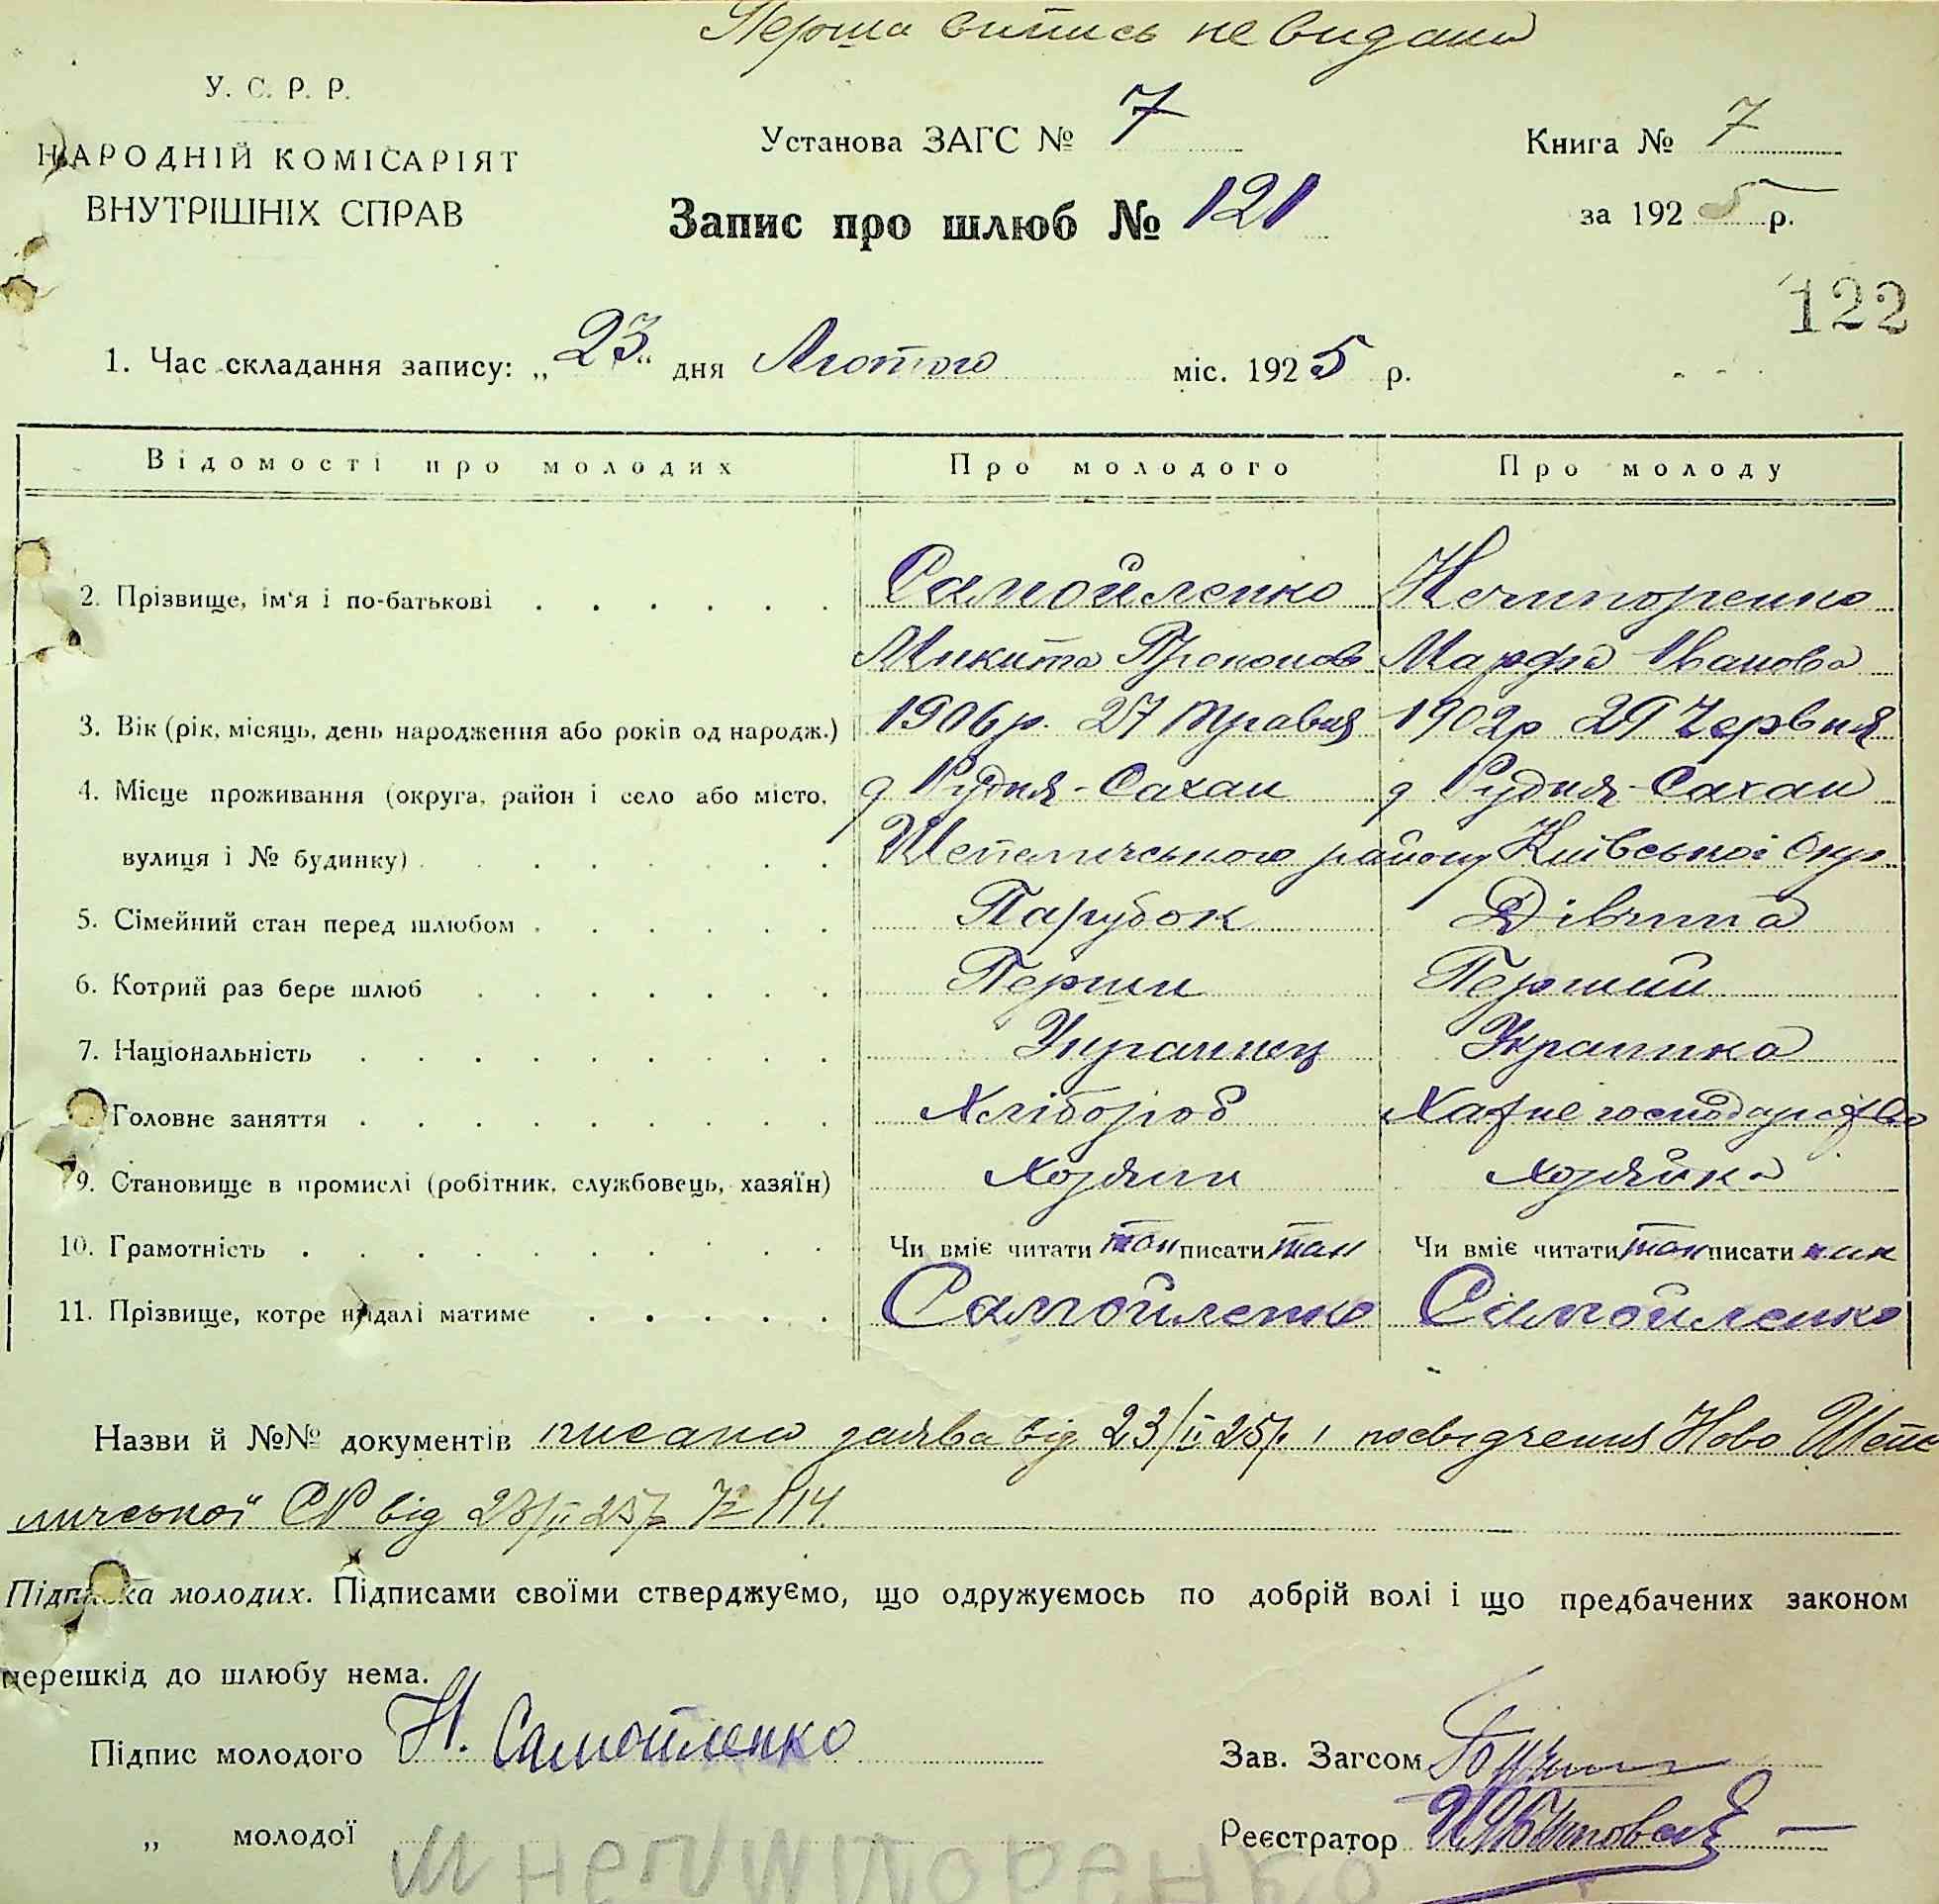 Перша випись не видана
У. С. Р. Р.
НАРОДНІЙ КОМІСАРІЯТ
ВНУТРІШНІХ СПРАВ
Установа ЗАГС № 7
Книга № 7
за 1925 р.
Запис про шлюб № 121
122
1. Час складання запису: „23“ дня Лютого міс. 1925 р.
Відомості про молодих Про молодого Про молоду
2. Прізвище, ім'я і по-батькові Самойленко Нечипоренко
Микита Прокопов Марфа Іванова
3. Вік (рік, місяць, день народження або років од народж.) 1906 р. 27 травня 1902 р 29 Червня
4. Місце проживання (округа, район і село або місто, д Рудня-Сахан д Рудня-Сахан
вулиця і № будинку) Шепеличського району Київської Окр
5. Сімейний стан перед шлюбом Парубок Дівчина
6. Котрий раз бере шлюб Перши Перший
7. Національність Украинец Украинка
Головне заняття Хлібороб Хатне господарство
9. Становище в промислі (робітник, службовець, хазяїн) Хозяин Хозяйка
10. Грамотність Чи вміє читати так писати так Чи вміє читати так писати так
11. Прізвище, котре надалі матиме Самойленко Самойленко
Назви й №№ документів писана заява від 23/II 25р і посвідчення Ново Шепе
личської СР від 23/II 25р № 114
Підписка молодих. Підписами своїми стверджуємо, що одружуємось по добрій волі і що предбачених законом
перешкід до шлюбу нема.
Підпис молодого Н. Самойленко
Зав. Загсом
„ молодої М нечипоренко
Реєстратор